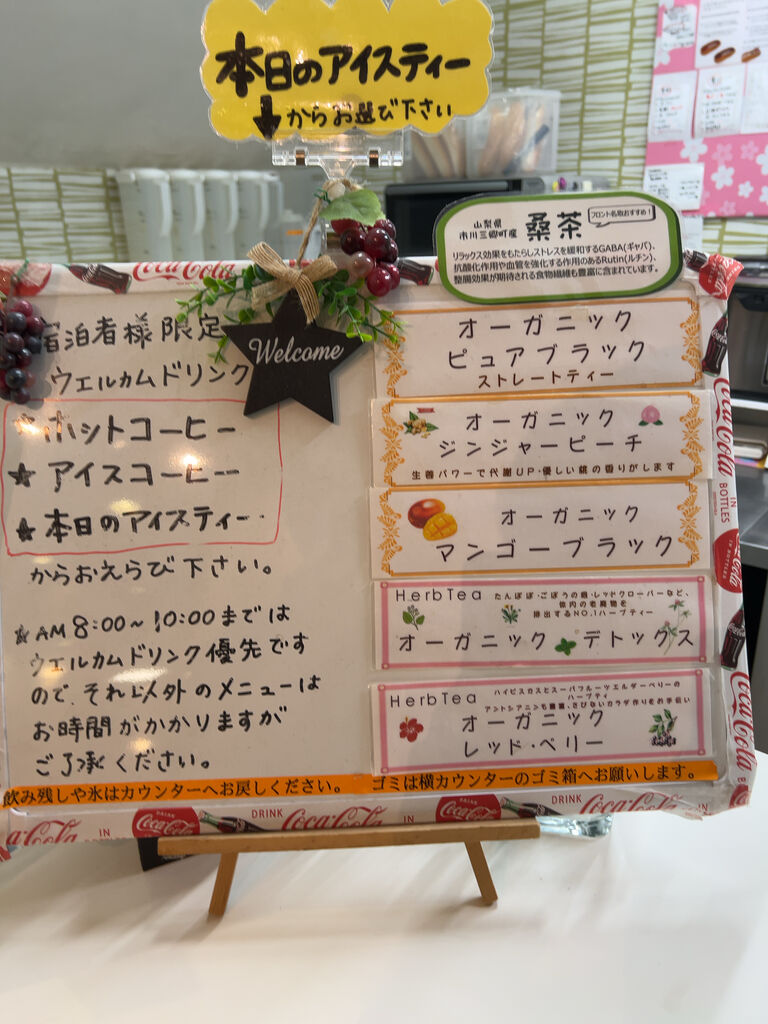 本日のアイスティー
↓からお選び下さい
山梨県
市川三郷町産
桑茶
フロント名取おすすめ!
リラックス効果をもたらしストレスを緩和するGABA(ギャバ)、
抗酸化作用や血管を強化する作用のあるRutin(ルチン)、
整腸効果が期待される食物繊維も豊富に含まれています。
Welcome
宿泊者様限定
ウェルカムドリンク
★ホットコーヒー
★アイスコーヒー
★本日のアイスティー
からおえらび下さい。
★AM8:00~10:00までは
ウェルカムドリンク優先です
ので、それ以外のメニューは
お時間がかかりますが
ご了承ください。
オーガニック
ピュアブラック
ストレートティー
オーガニック
ジンジャーピーチ
生姜パワーで代謝UP・優しい桃の香りがします
オーガニック
マンゴーブラック
HerbTea
たんぽぽ・ごぼうの根・レッドクローバーなど、
体内の老廃物を
排出するNO.1ハーブティー
オーガニック デトックス
HerbTea
ハイビスカスとスーパフルーツエルダーベリーの
ハーブティ
アントシアニンも豊富、さびないカラダ作りをお手伝い
オーガニック
レッド・ベリー
飲み残しや氷はカウンターへお戻しください。
ゴミは横カウンターのゴミ箱へお願いします。
Coca-Cola
Coca-Cola
IN
BOTTLES
Coca-Cola
Coca-Cola
IN
DRINK
Coca-Cola
DRINK
Coca-Cola
IN
DRINK
Coca-Cola